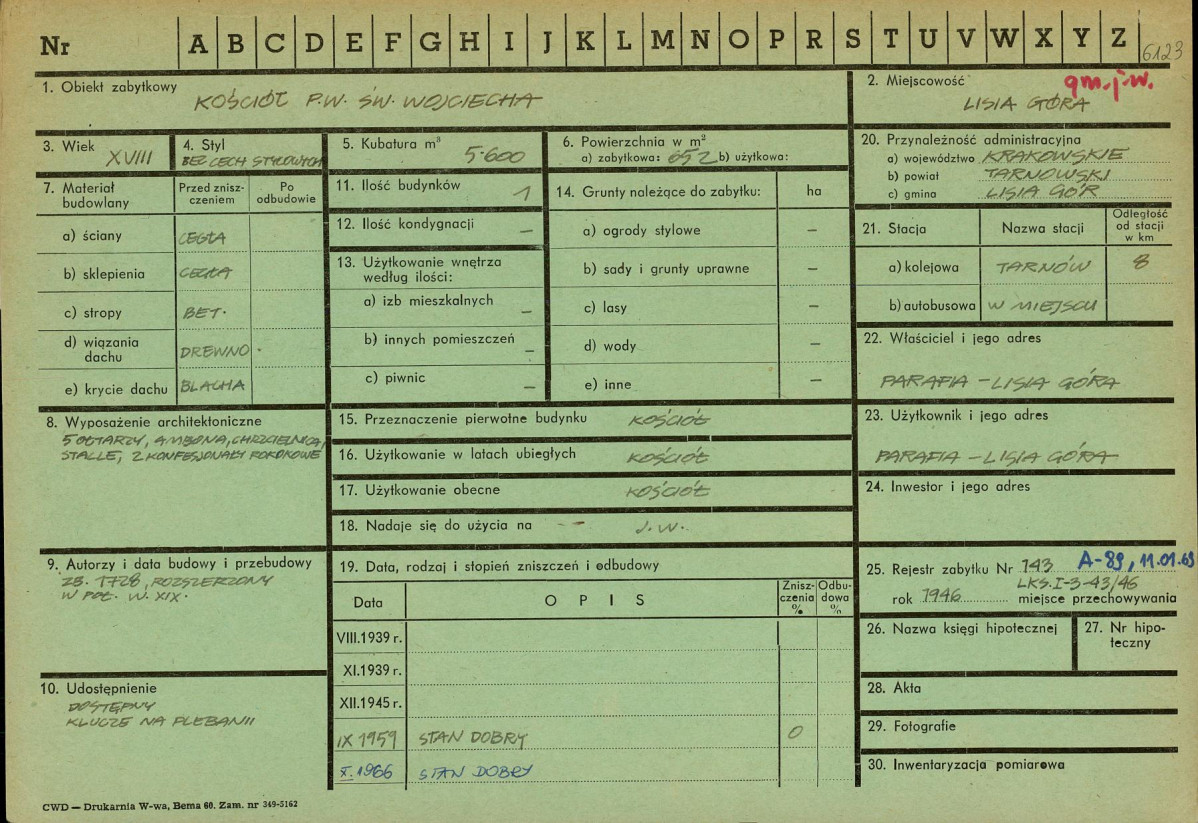 Nr A B C D E F G H I J K L M N O P R S T U V W X Y Z 6123
1. Obiekt zabytkowy
KOŚCIÓŁ P.W. ŚW. WOJCIECHA
2. Miejscowość gm. j.w.
LISIA GÓRA
3. Wiek XVIII
4. Styl
BEZ CECH STYLOWYCH
5. Kubatura m³ 5.600
6. Powierzchnia w m²
a) zabytkowa: 652 b) użytkowa:
20. Przynależność administracyjna
a) województwo KRAKOWSKIE
b) powiat TARNOWSKI
c) gmina LISIA GÓR
7. Materiał budowlany
Przed zniszczeniem
Po odbudowie
a) ściany CEGŁA
b) sklepienia CEGŁA
c) stropy BET.
d) wiązania dachu DREWNO.
e) krycie dachu BLACHA
11. Ilość budynków 1
12. Ilość kondygnacji –
13. Użytkowanie wnętrza
według ilości:
a) izb mieszkalnych –
b) innych pomieszczeń –
c) piwnic –
14. Grunty należące do zabytku: ha
a) ogrody stylowe –
b) sady i grunty uprawne –
c) lasy –
d) wody –
e) inne –
21. Stacja Nazwa stacji Odległość od stacji w km
a) kolejowa TARNÓW 8
b) autobusowa W MIEJSCU
22. Właściciel i jego adres
PARAFIA – LISIA GÓRA
8. Wyposażenie architektoniczne
5 OŁTARZY, AMBONA, CHRZCIELNICA,
STALLE, 2 KONFESJONAŁY ROKOKOWE
15. Przeznaczenie pierwotne budynku KOŚCIÓŁ
16. Użytkowanie w latach ubiegłych KOŚCIÓŁ
17. Użytkowanie obecne KOŚCIÓŁ
18. Nadaje się do użycia na J.W.
23. Użytkownik i jego adres
PARAFIA – LISIA GÓRA
24. Inwestor i jego adres
9. Autorzy i data budowy i przebudowy
ZB. 1728, ROZSZERZONY
W POŁ. W. XIX.
10. Udostępnienie
DOSTĘPNY
KLUCZE NA PLEBANII
19. Data, rodzaj i stopień zniszczeń i odbudowy
Data OPIS Zniszczenia % Odbudowa %
VIII.1939 r.
XI.1939 r.
XII.1945 r.
IX 1959 STAN DOBRY 0
X. 1966 STAN DOBRY
25. Rejestr zabytku Nr 143 A-89, 11.01.69
LKS.I-3-43/46
rok 1946 miejsce przechowywania
26. Nazwa księgi hipotecznej
27. Nr hipoteczny
28. Akta
29. Fotografie
30. Inwentaryzacja pomiarowa
CWD — Drukarnia W-wa, Bema 60. Zam. nr 349-5162